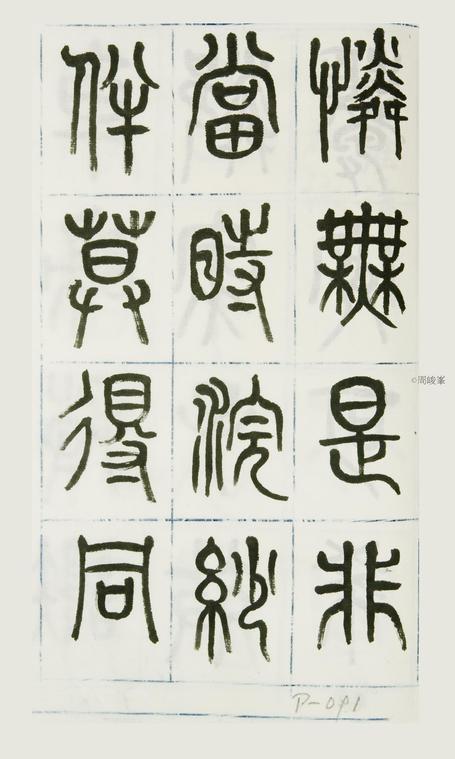 憐無是非
當時浣紗
伴莫得同
©周峻峯
P-091